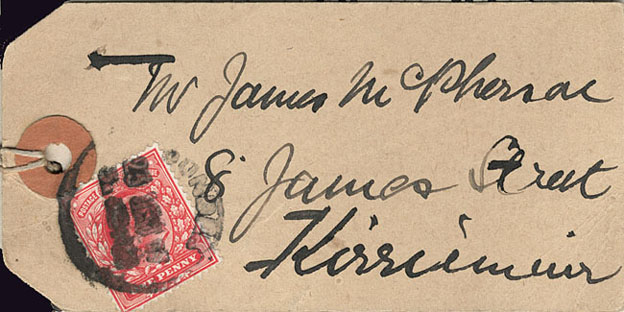 Mr James McPherson
8 James Street
Kirriemuir
POSTAGE
E PENNY
DUND